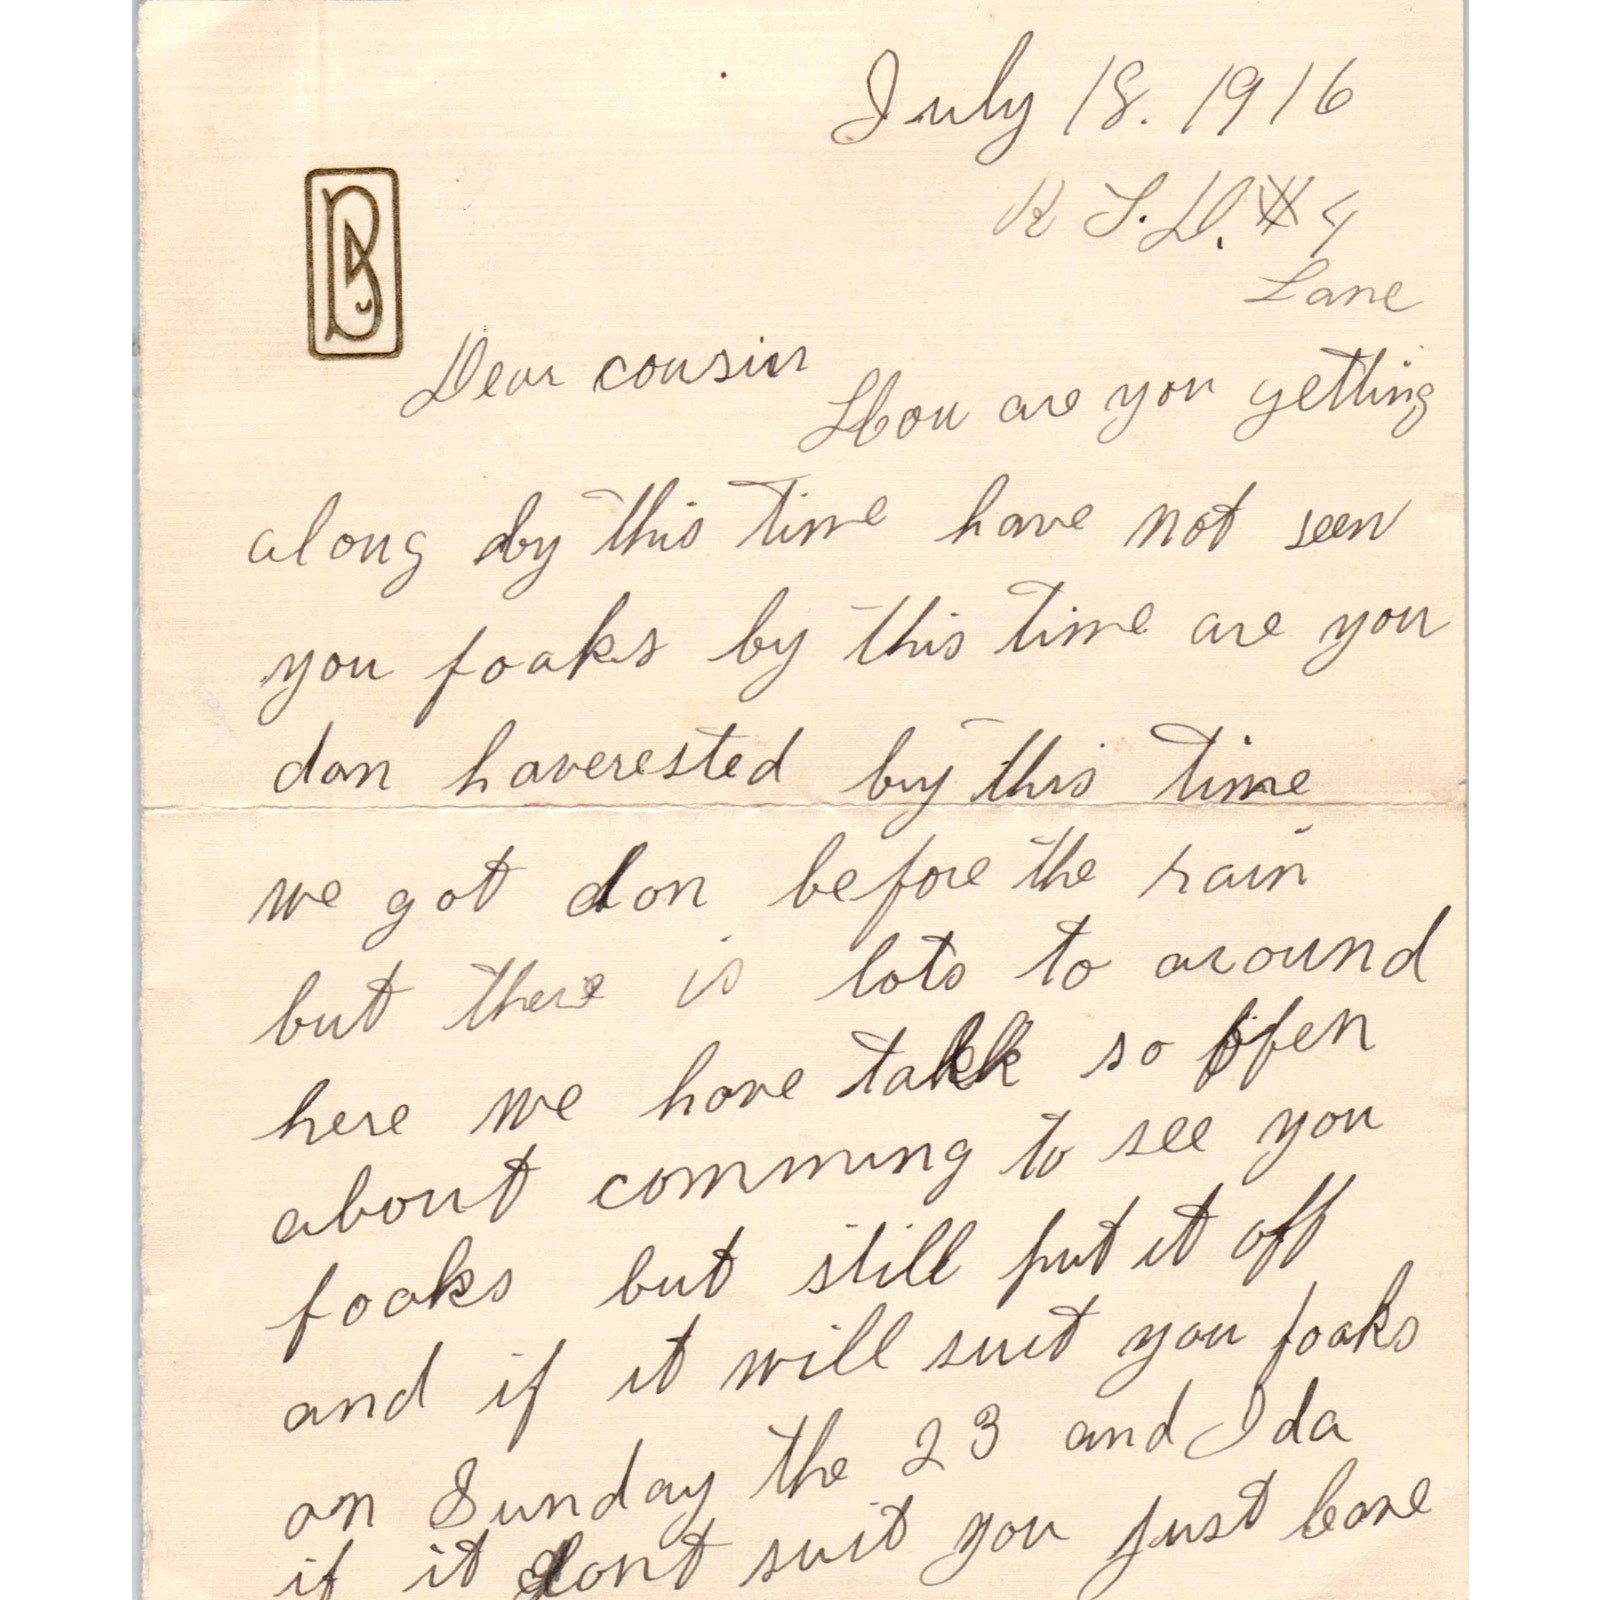 July 18. 1916
R F. D. # 4
Lane
Dear cousin
How are you getting
along by this time have not seen
you foaks by this time are you
don haverested by this time
we got don before the rain
but there is lots to around
here we have talk so ofen
about comming to see you
foaks but still put it off
and if it will suit you foaks
on Sunday the 23 and Ida
if it dont suit you just